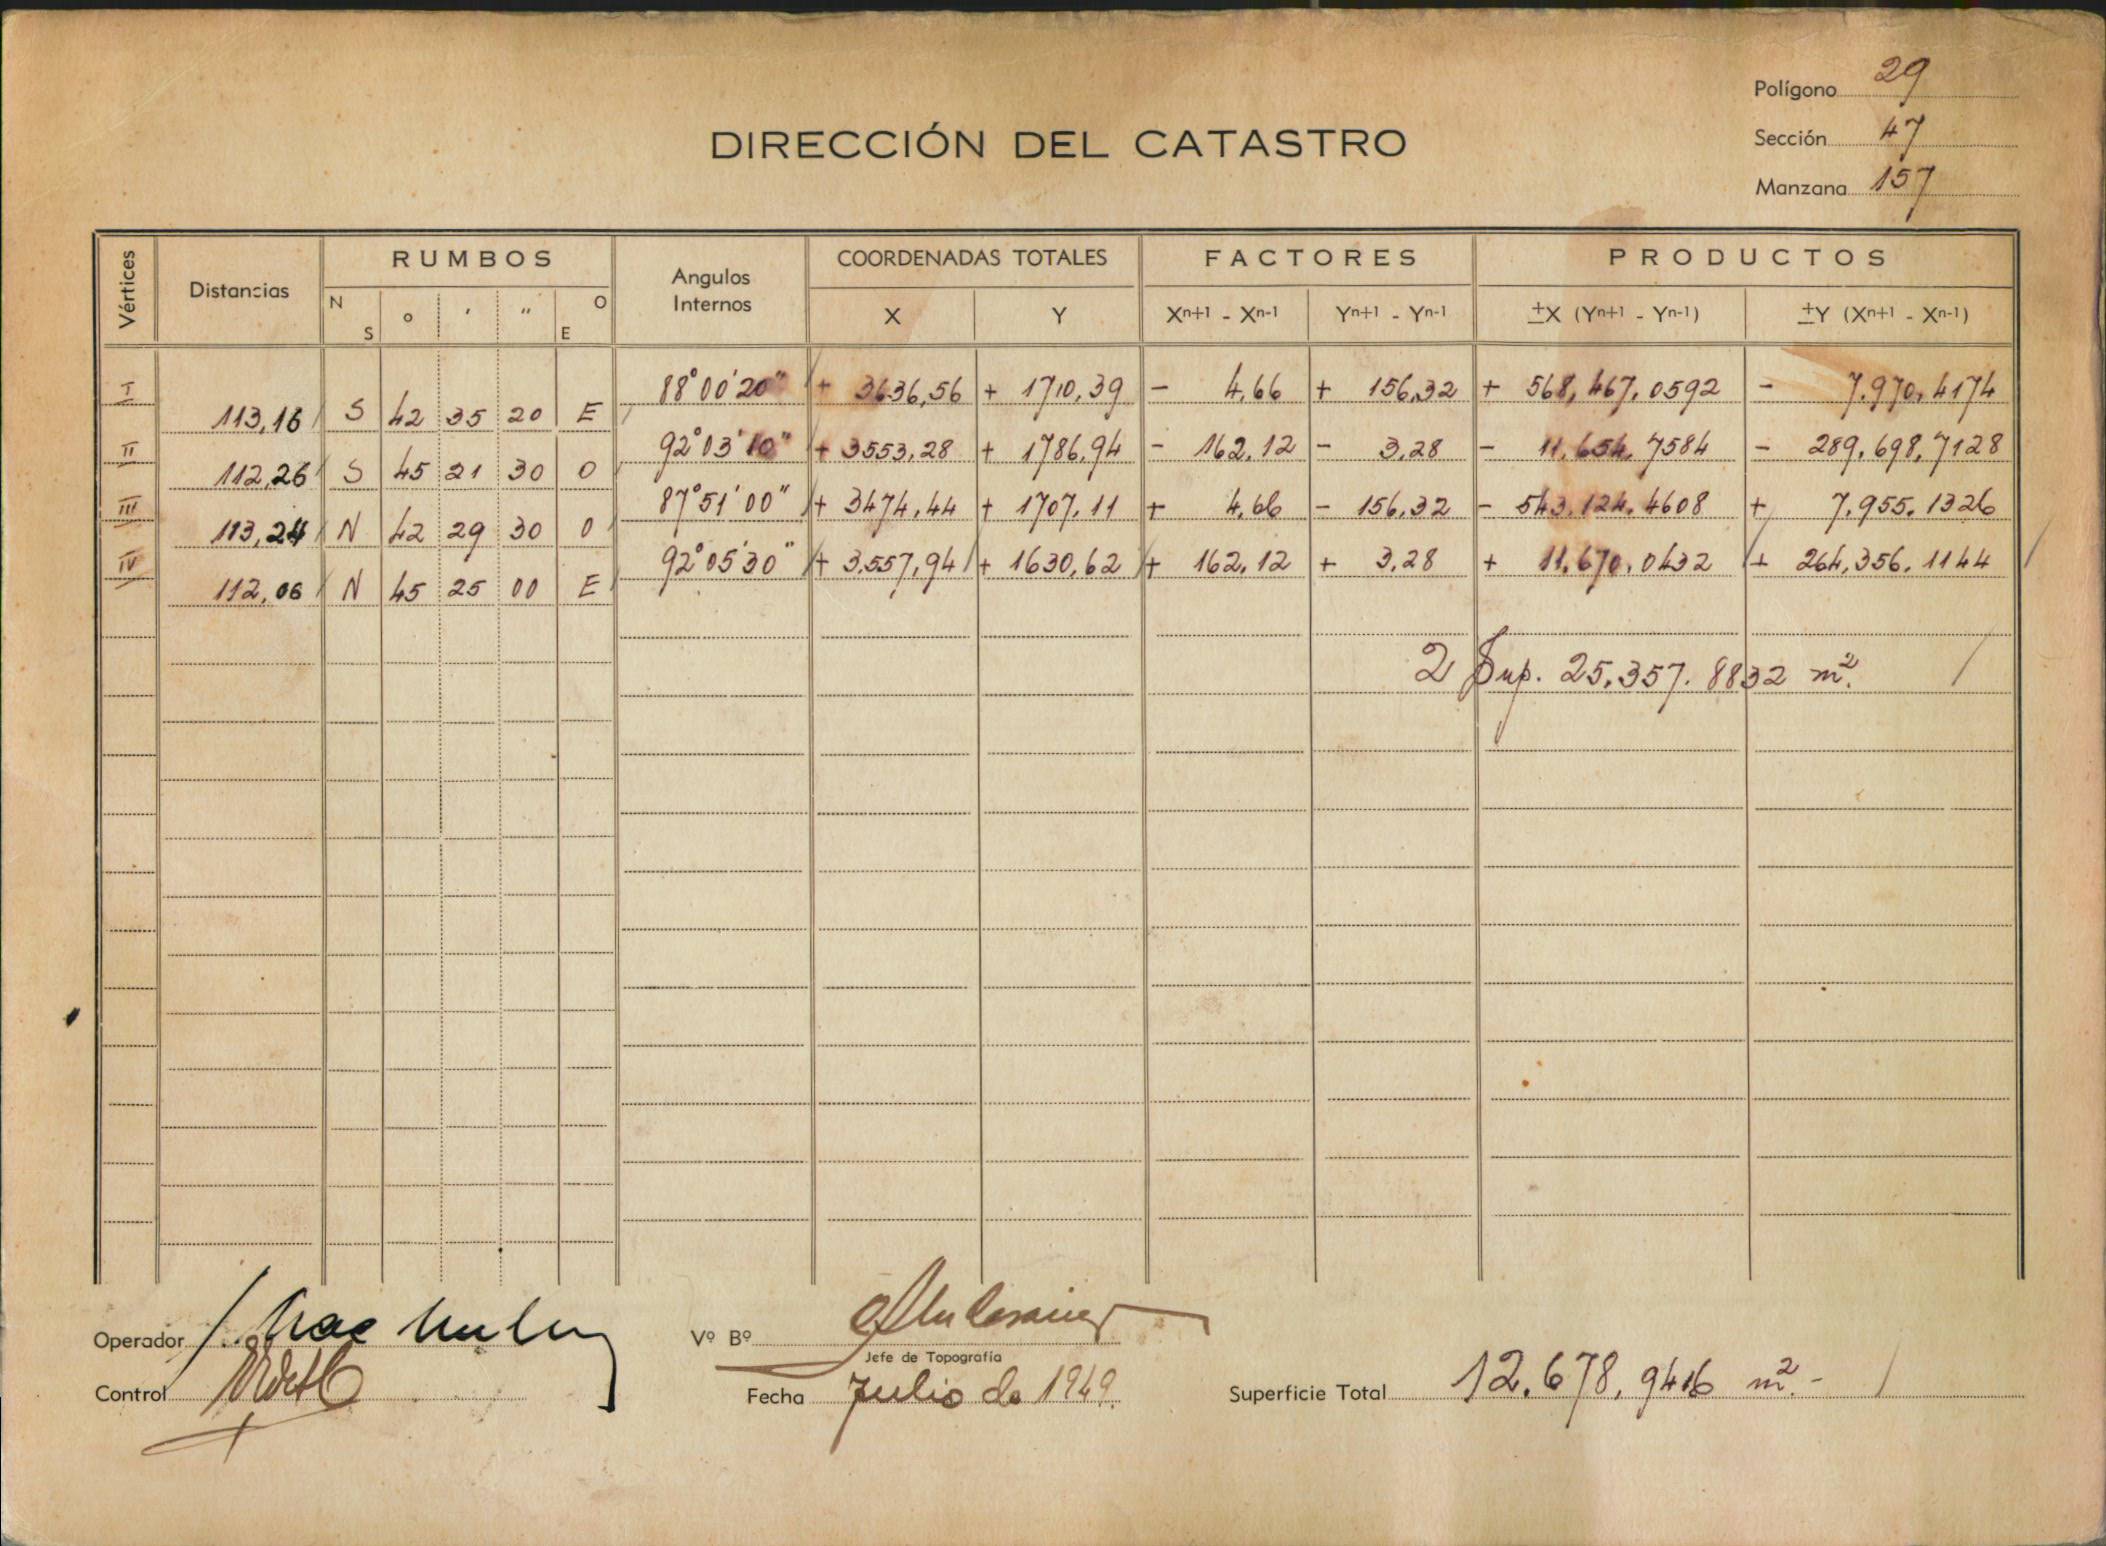 Polígono 29
DIRECCIÓN DEL CATASTRO
Sección 47
Manzana 157
Vértices Distancias RUMBOS N S o ′ ″ O E Angulos Internos COORDENADAS TOTALES X Y FACTORES Xn+1 - Xn-1 Yn+1 - Yn-1 PRODUCTOS ±X (Yn+1 - Yn-1) ±Y (Xn+1 - Xn-1)
I 88° 00' 20" + 3636,56 + 1710,39 - 4,66 + 156,32 + 568,467.0592 - 7.970,4174
113,16 S 42 35 20 E
II 92° 03' 10" + 3553,28 + 1786,94 - 162,12 - 3,28 - 11.654.7584 - 289.698,7128
112,26 S 45 21 30 O
III 87° 51' 00" + 3474,44 + 1707,11 + 4,66 - 156,32 - 543.124.4608 + 7.955.1326
113,24 N 42 29 30 O
IV 92° 05' 30" + 3.557,94 + 1630,62 + 162,12 + 3,28 + 11.670.0432 + 264,356.1144
112,06 N 45 25 00 E
2 Sup. 25.357.8832 m².
Operador
Vº Bº
Jefe de Topografía
Control
Fecha Julio de 1949.
Superficie Total 12.678,9416 m².-